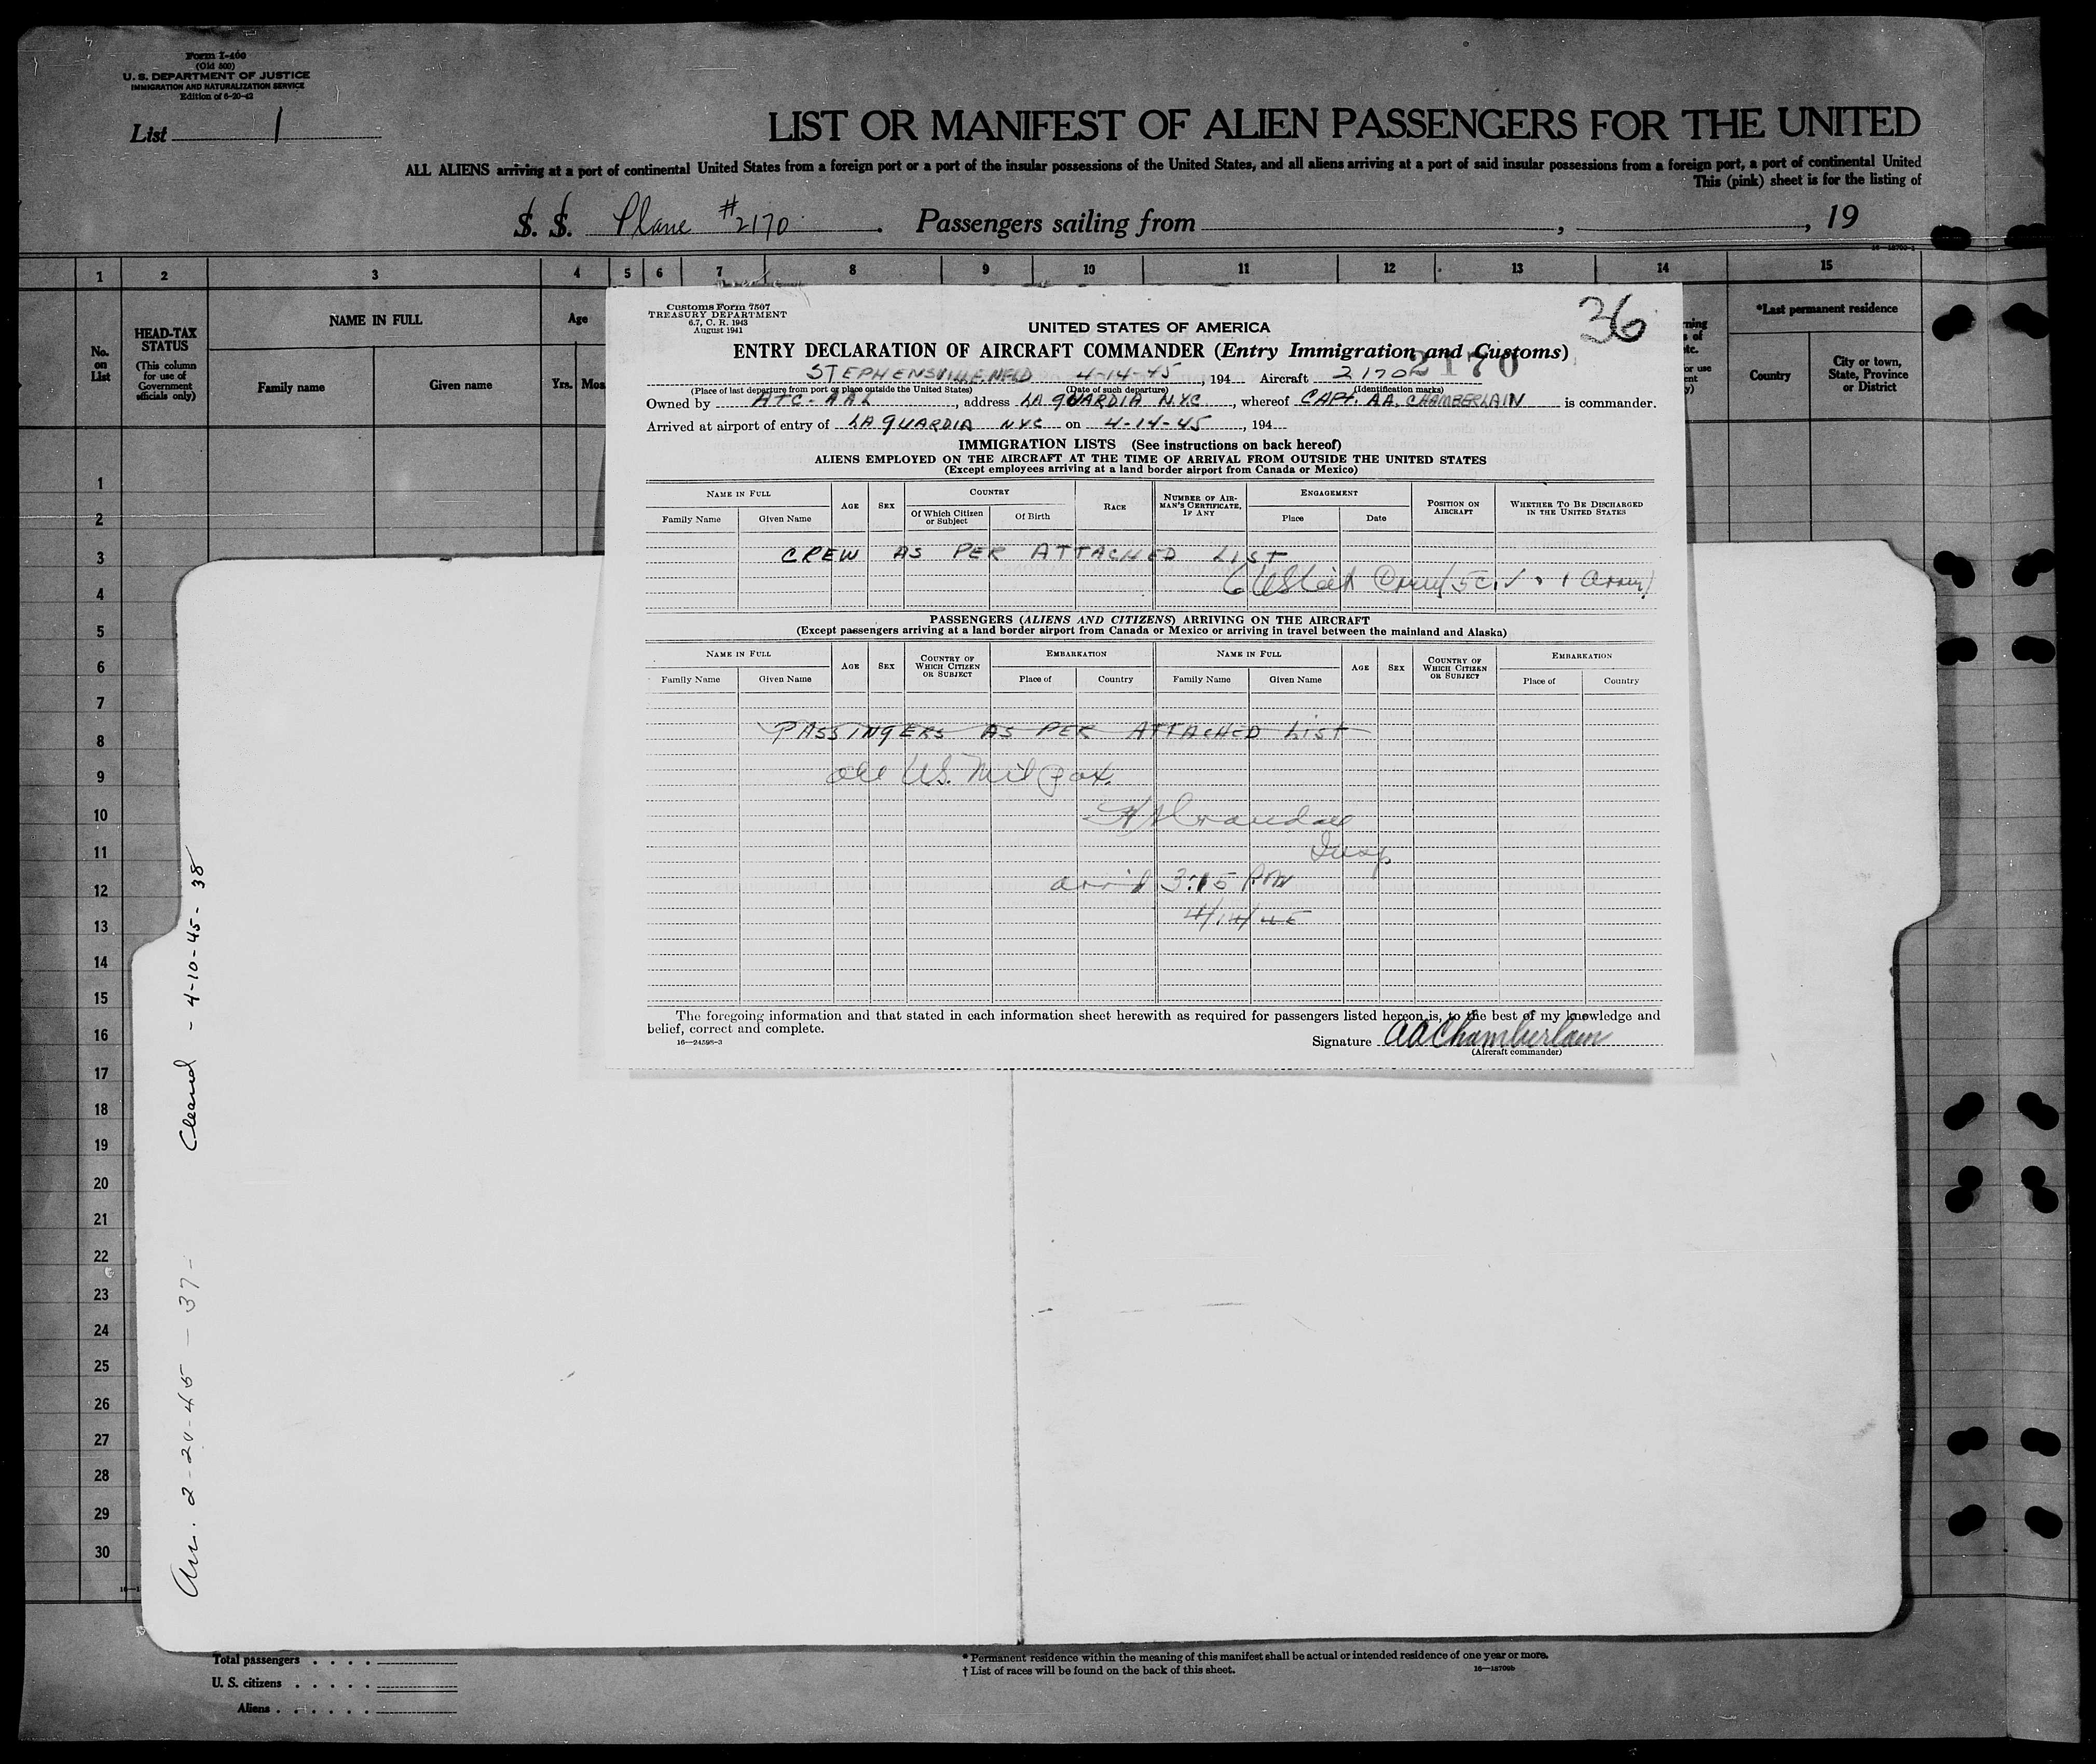 Form I-400
(Old 500)
U. S. DEPARTMENT OF JUSTICE
IMMIGRATION AND NATURALIZATION SERVICE
Edition of 6-20-42
List 1
LIST OR MANIFEST OF ALIEN PASSENGERS FOR THE UNITED
ALL ALIENS arriving at a port of continental United States from a foreign port or a port of the insular possessions of the United States, and all aliens arriving at a port of said insular possessions from a foreign port, a port of continental United
This (pink) sheet is for the listing of
S. S. Plane #2170. Passengers sailing from , , 19
1 2 3 4 5 6 7 8 9 10 11 12 13 14 15
No. on List
HEAD-TAX STATUS
(This column for use of Government officials only)
NAME IN FULL
Family name Given name
Age
Yrs. Mos
*Last permanent residence
Country
City or town, State, Province or District
Customs Form 7507
TREASURY DEPARTMENT
6.7, C. R. 1943
August 1941
36
UNITED STATES OF AMERICA
ENTRY DECLARATION OF AIRCRAFT COMMANDER (Entry Immigration and Customs)
2170
STEPHENSVILLE NFLD 4-14-45, 194 Aircraft 2170
(Place of last departure from port or place outside the United States) (Date of such departure) (Identification marks)
Owned by ATC-AAL, address LA GUARDIA N.Y.C, whereof CAPt. AA. CHAMBERLAIN is commander.
Arrived at airport of entry of LA GUARDIA NYC on 4-14-45, 194
IMMIGRATION LISTS (See instructions on back hereof)
ALIENS EMPLOYED ON THE AIRCRAFT AT THE TIME OF ARRIVAL FROM OUTSIDE THE UNITED STATES
(Except employees arriving at a land border airport from Canada or Mexico)
NAME IN FULL
Family Name Given Name
AGE SEX
COUNTRY
Of Which Citizen or Subject Of Birth
RACE
NUMBER OF AIRMAN'S CERTIFICATE, IF ANY
ENGAGEMENT
Place Date
POSITION ON AIRCRAFT
WHETHER TO BE DISCHARGED IN THE UNITED STATES
CREW AS PER ATTACHED LIST
PASSENGERS (ALIENS AND CITIZENS) ARRIVING ON THE AIRCRAFT
(Except passengers arriving at a land border airport from Canada or Mexico or arriving in travel between the mainland and Alaska)
NAME IN FULL AGE SEX COUNTRY OF WHICH CITIZEN OR SUBJECT EMBARKATION NAME IN FULL AGE SEX COUNTRY OF WHICH CITIZEN OR SUBJECT EMBARKATION
Family Name Given Name Place of Country Family Name Given Name Place of Country
PASSINGERS AS PER ATTACHED LIST
all U.S. Mil pax.
Insp
arr'd 3:15 PM
4/14/45
The foregoing information and that stated in each information sheet herewith as required for passengers listed hereon is, to the best of my knowledge and
belief, correct and complete.
16—24598-3
Signature AA Chamberlain
(Aircraft commander)
1
2
3
4
5
6
7
8
9
10
11
12
13
14
15
16
17
18
19
20
21
22
23
24
25
26
27
28
29
30
Cleared - 4-10-45 - 38
Arr. 2-20-45 - 37-
Total passengers
U. S. citizens
Aliens
* Permanent residence within the meaning of this manifest shall be actual or intended residence of one year or more.
† List of races will be found on the back of this sheet.